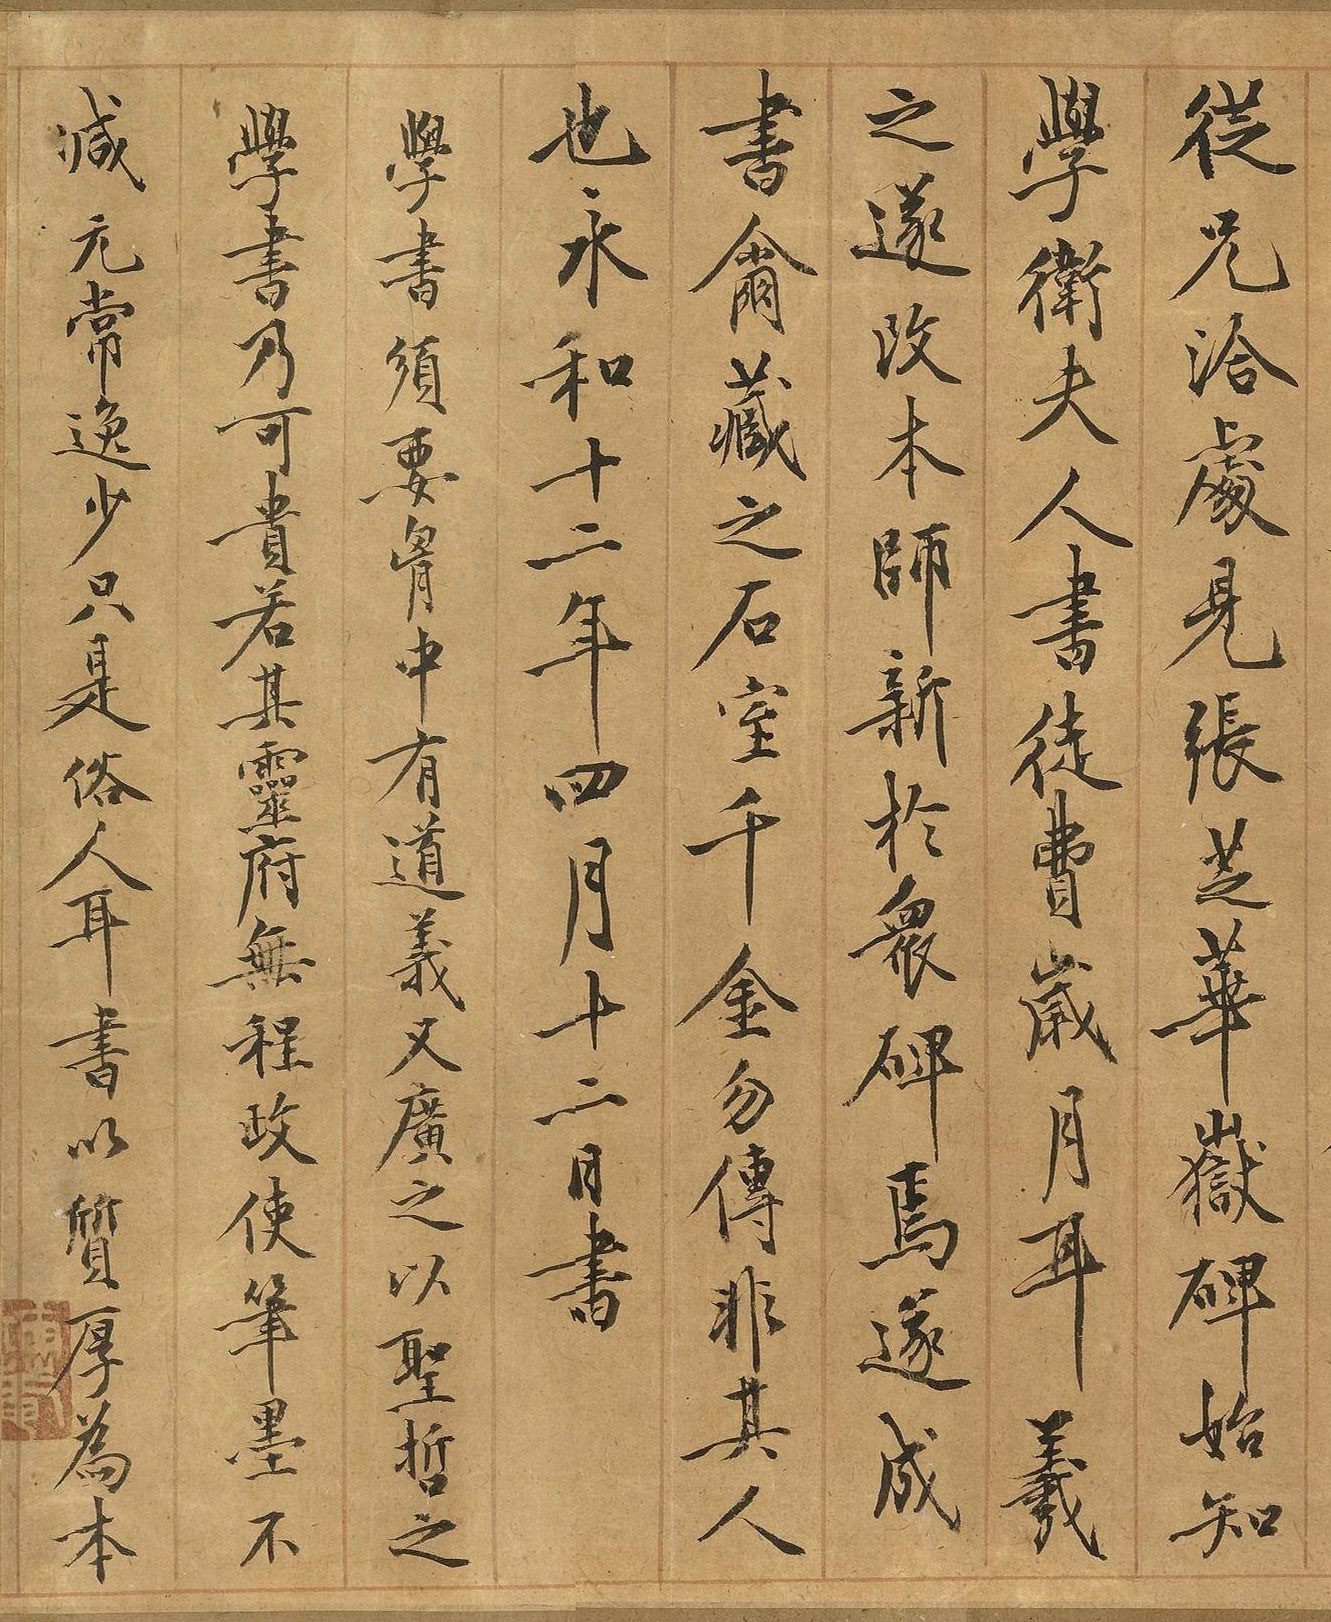 從兄洽處見張芝華嶽碑始知
學衛夫人書徒費歲月耳羲
之遂改本師新於眾碑焉遂成
書爾藏之石室千金勿傳非其人
也永和十二年四月十二日書
學書須要胷中有道義又廣之以聖哲之
學書乃可貴若其靈府無程政使筆墨不
減元常逸少只是俗人耳書以質厚為本